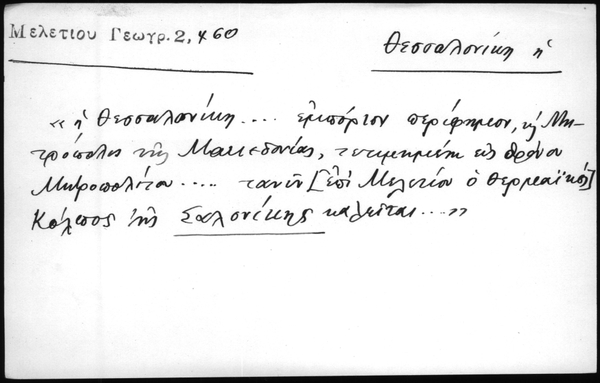 Μελετίου Γεωγρ. 2, 460
Θεσσαλονίκη ἡ
« ἡ Θεσσαλονίκη .... ἐμπόριον περίφημον, κ̀ Μη-
τρόπολις τῆς Μακεδονίας, τετιμημένη εἰς θρόνον
Μητροπολίτου ..... τανῦν [ἐπὶ Μελετίου ὁ Θερμαϊκὸς]
Κόλπος τῆς Σαλονίκης καλεῖται .... »